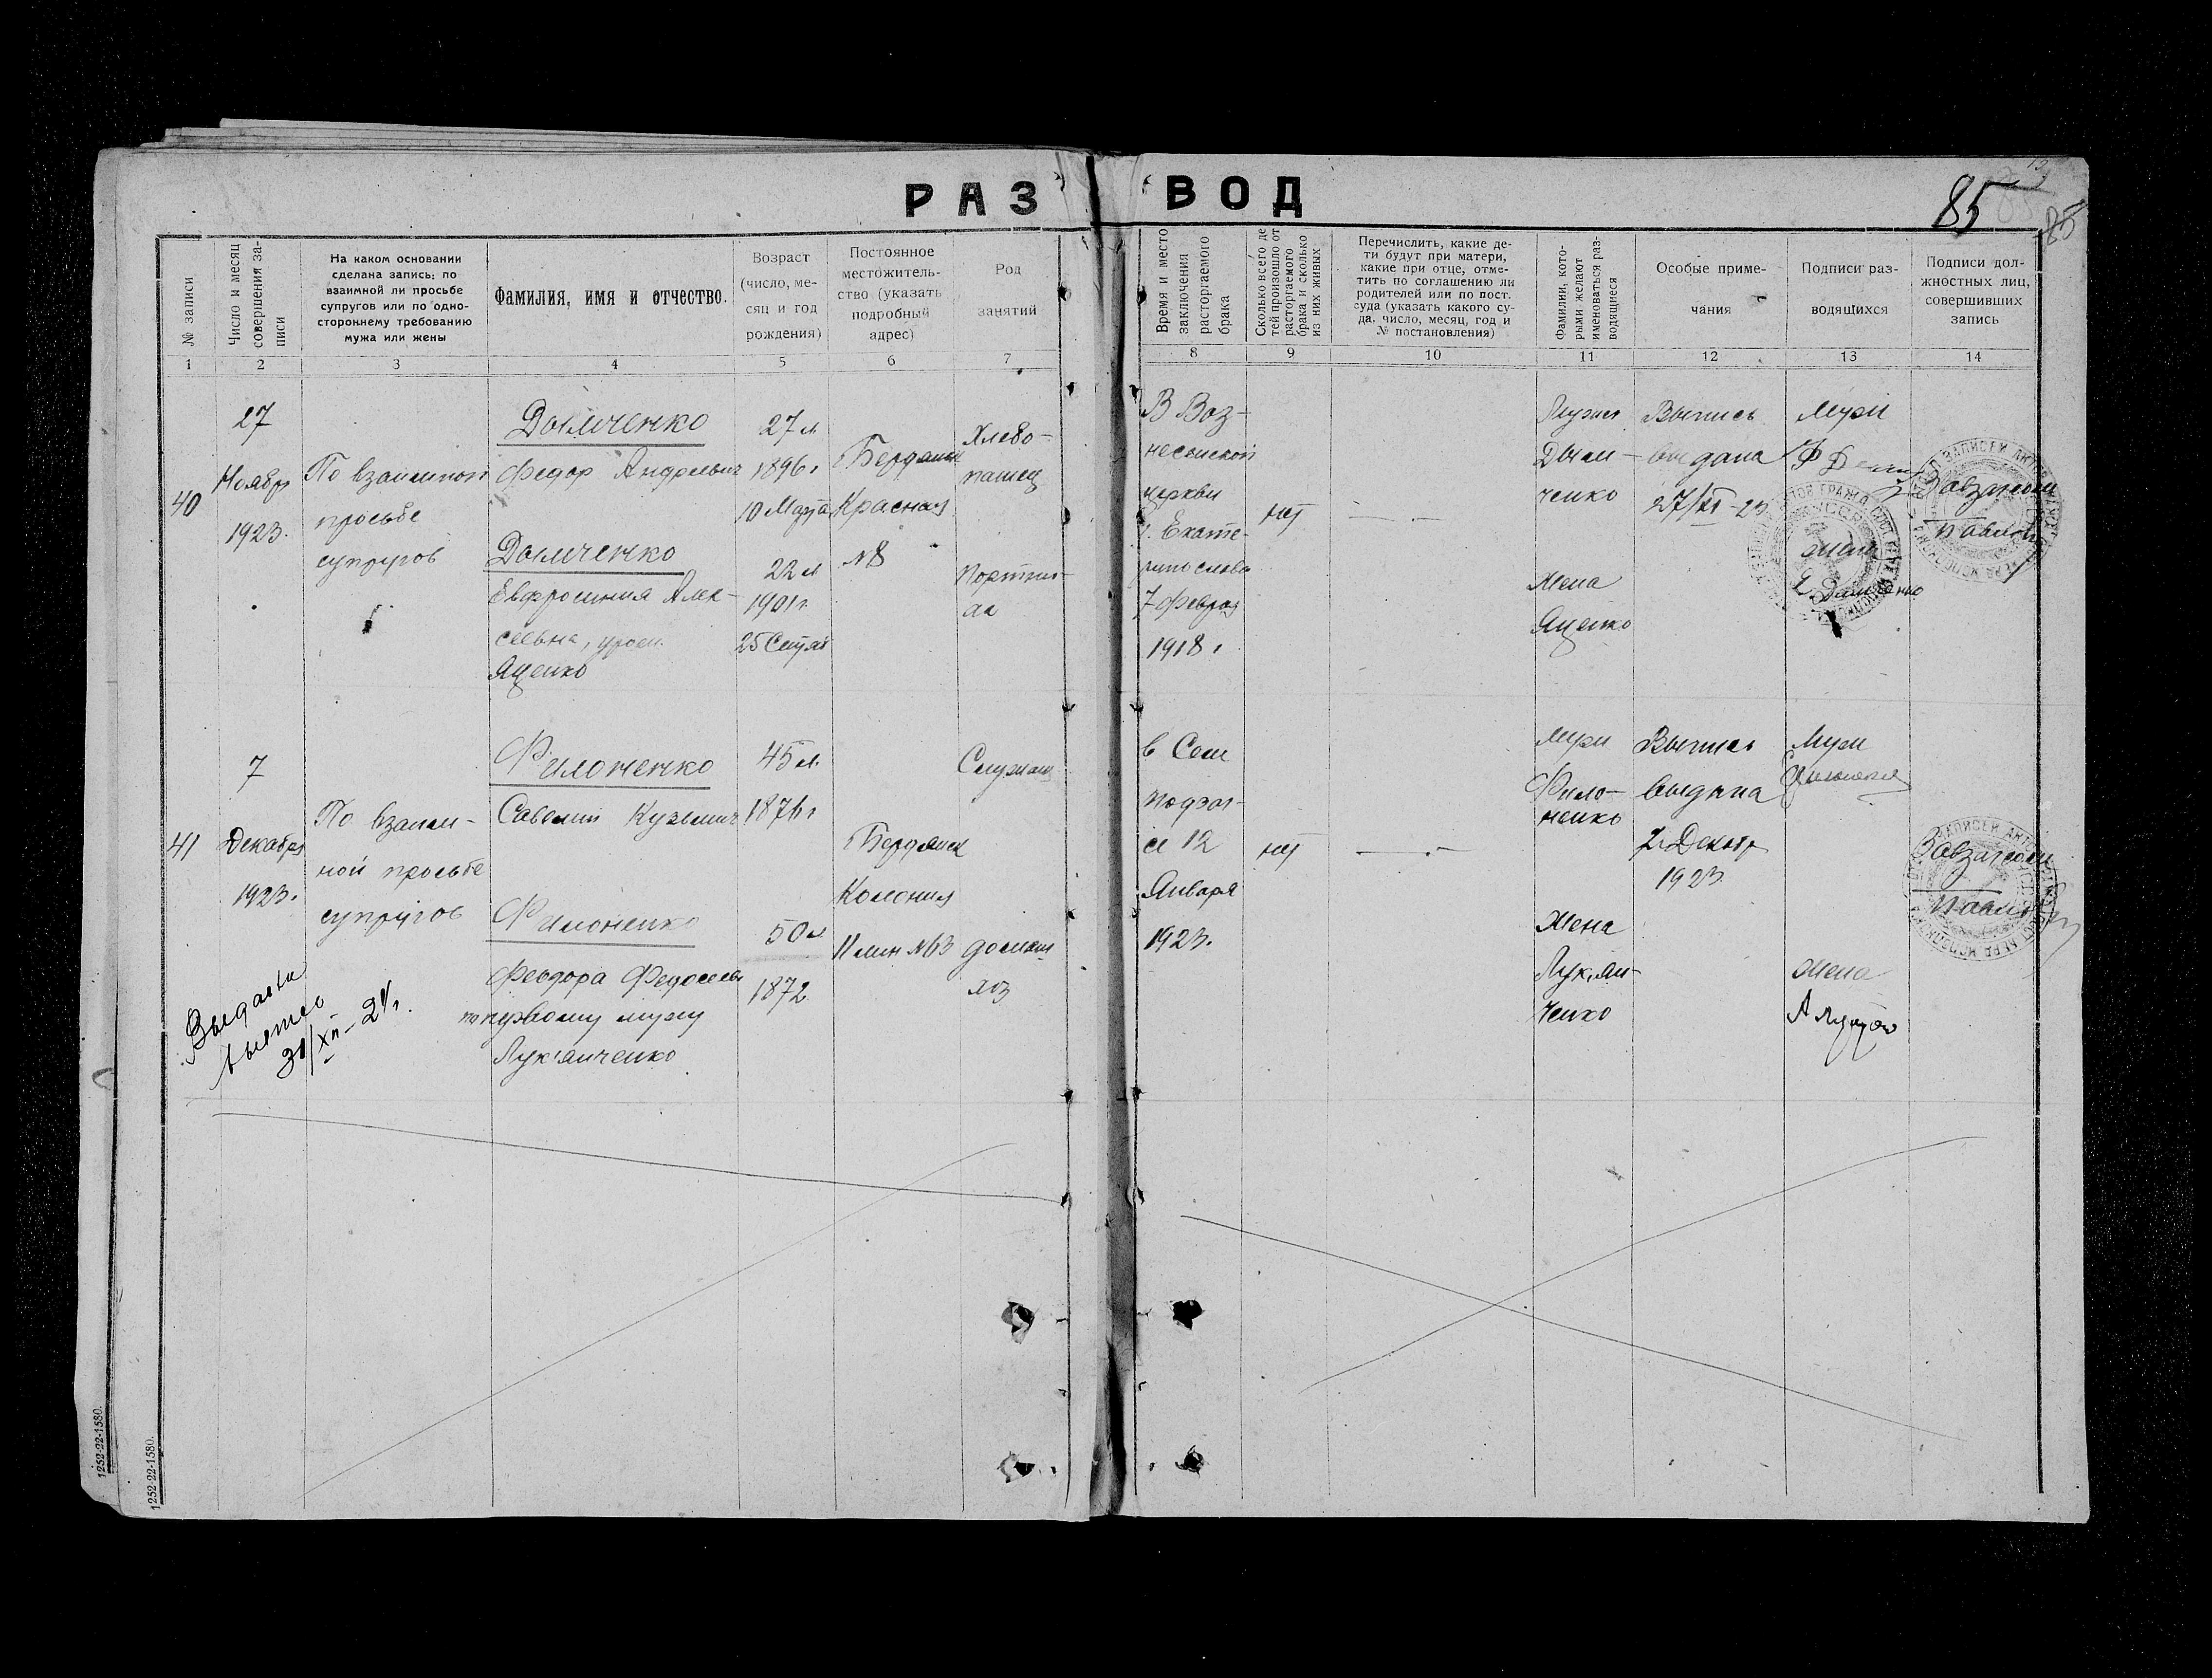 РАЗВОД
85
85
№ записи
Число и месяц
совершения за-
писи
На каком основании
сделана запись: по
взаимной ли просьбе
супругов или по одно-
стороннему требованию
мужа или жены
Фамилия, имя и отчество.
Возраст
(число, ме-
сяц и год
рождения)
Постоянное
местожитель-
ство (указать
подробный
адрес)
Род
занятий
Время и место
заключения
расторгаемого
брака
Сколько всего де
тей произошло от
расторгаемого
брака и сколько
из них живых
Перечислить, какие де-
ти будут при матери,
какие при отце, отме-
тить по соглашению ли
родителей или по пост.
суда (указать какого су-
да, число, месяц, год и
№ постановления)
Фамилии, кото-
рыми желают
именоваться раз-
водящиеся
Особые приме-
чания
Подписи раз-
водящихся
Подписи дол-
жностных лиц,
совершивших
запись
1 2 3 4 5 6 7 8 9 10 11 12 13 14
40
27
Ноября
1923.
По взаимной
просьбе
супругов
Дымченко
Федор Андреевич
Дымченко
Евфросиния Алек-
сеевна, урож.
Яценко
27 л.
1896 г
10 Марта
22 л
1901 г.
25 Сентяб
Бердянск
Красная
№8
Хлебо-
пашец
Портни-
ха
В Воз-
несенской
церкви
г. Екате-
ринослава
7 Февраля
1918 г
нет
Мужья
Дым-
ченко
Жена
Яценко
Выпись
выдана
27/XI-23
Муж
жена
Завзагсом
41
7
Декабря
1923.
По взаим-
ной просьбе
супругов
Филоненко
Савелий Кузьмич
Филоненко
Феодора Федосеев
по первому мужу
Лукъянченко
45 л.
1876 г
50 л
1872
Бердянск
Колония
11 лин №63
Служащ
домохоз
в Сем
1923.
12
Января
нет
Муж
Фило-
ненко
Жена
Лукьян-
ченко
Выпись
выдана
7 Декабр
1923
Муж
жена
Завзагсом
Выдана
выпись
31/XII-24г.
1252-22-1580.
1252-22-1580.